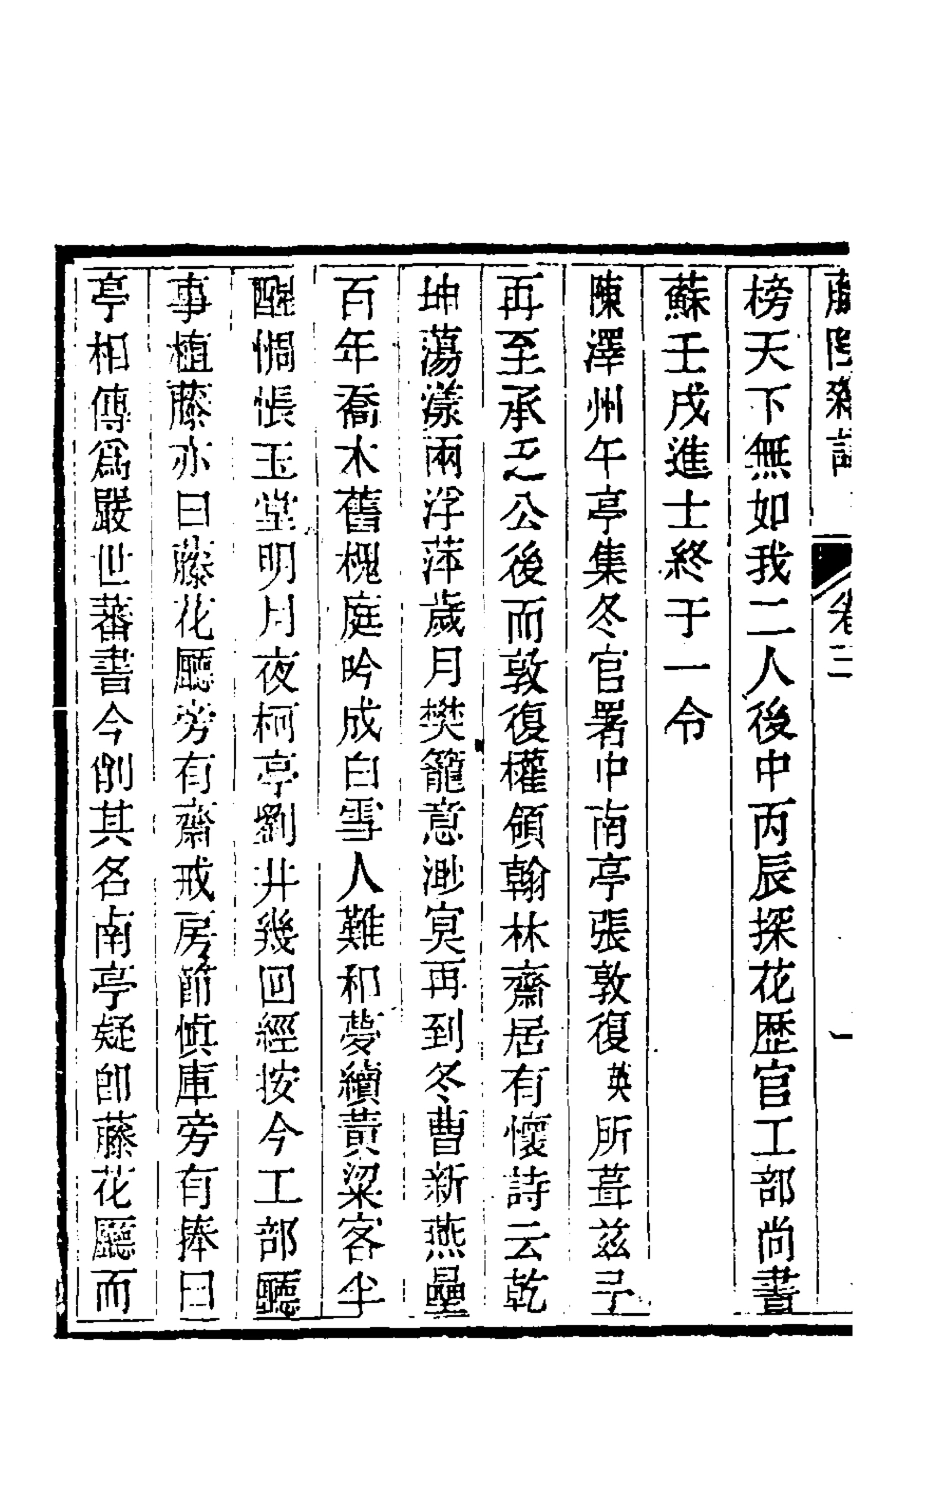 藤陰雜記 卷三
榜天下無如我二人後中丙辰探花歷官工部尚書
蘇壬戌進士終于一令
陳澤州午亭集冬官署中南亭張敦復英所葺茲予
再至承乏公後而敦復權領翰林齋居有懷詩云乾
坤蕩漾兩浮萍歲月樊籠意渺冥再到冬曹新燕壘
百年喬木舊槐庭吟成白雪人難和夢續黃粱客半
醒惆悵玉堂明月夜柯亭劉井幾回經按今工部廳
事植藤亦曰藤花廳旁有齋戒房節慎庫旁有捧日
亭相傳爲嚴世蕃書今削其名南亭疑卽藤花廳而